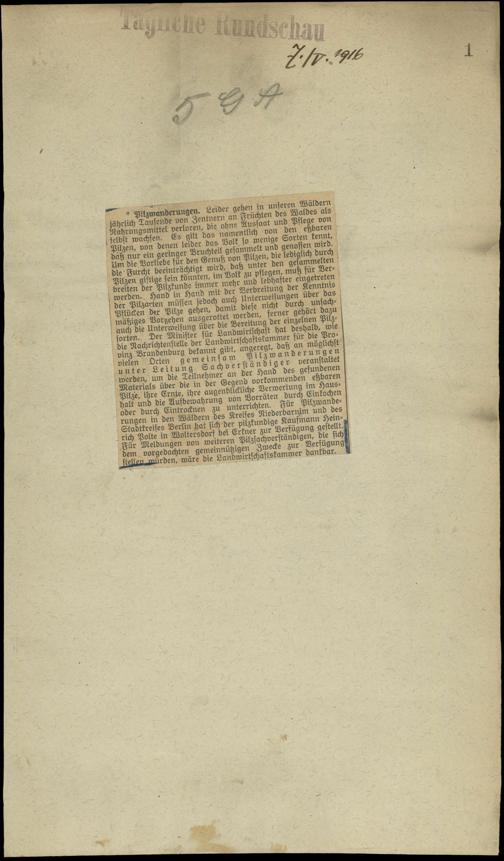 Tägliche Rundschau
7. IV. 1916
1
5 G A
* Pilzwanderungen. Leider gehen in unseren Wäldern
jährlich Tausende von Zentnern an Früchten des Waldes als
Nahrungsmittel verloren, die ohne Aussaat und Pflege von
selbst wachsen. Es gilt das namentlich von den eßbaren
Pilzen, von denen leider das Volk so wenige Sorten kennt,
daß nur ein geringer Bruchteil gesammelt und genossen wird.
Um die Vorliebe für den Genuß von Pilzen, die lediglich durch
die Furcht beeinträchtigt wird, daß unter den gesammelten
Pilzen giftige sein könnten, im Volk zu pflegen, muß für Ver-
breiten der Pilzkunde immer mehr und lebhafter eingetreten
werden. Hand in Hand mit der Verbreitung der Kenntnis
der Pilzarten müssen jedoch auch Unterweisungen über das
Pflücken der Pilze gehen, damit diese nicht durch unsach-
mäßiges Vorgehen ausgerottet werden, ferner gehört dazu
auch die Unterweisung über die Bereitung der einzelnen Pilz-
sorten. Der Minister für Landwirtschaft hat deshalb, wie
die Nachrichtenstelle der Landwirtschaftskammer für die Pro-
vinz Brandenburg bekannt gibt, angeregt, daß an möglichst
vielen Orten gemeinsam Pilzwanderungen
unter Leitung Sachverständiger veranstaltet
werden, um die Teilnehmer an der Hand des gefundenen
Materials über die in der Gegend vorkommenden eßbaren
Pilze, ihre Ernte, ihre augenblickliche Verwertung im Haus-
halt und die Aufbewahrung von Vorräten durch Einkochen
oder durch Eintrocknen zu unterrichten. Für Pilzwande-
rungen in den Wäldern des Kreises Niederbarnim und des
Stadtkreises Berlin hat sich der pilzkundige Kaufmann Hein-
rich Polte in Woltersdorf bei Erkner zur Verfügung gestellt.
Für Meldungen von weiteren Pilzsachverständigen, die sich
dem vorgedachten gemeinnützigen Zwecke zur Verfügung
stellen würden, wäre die Landwirtschaftskammer dankbar.